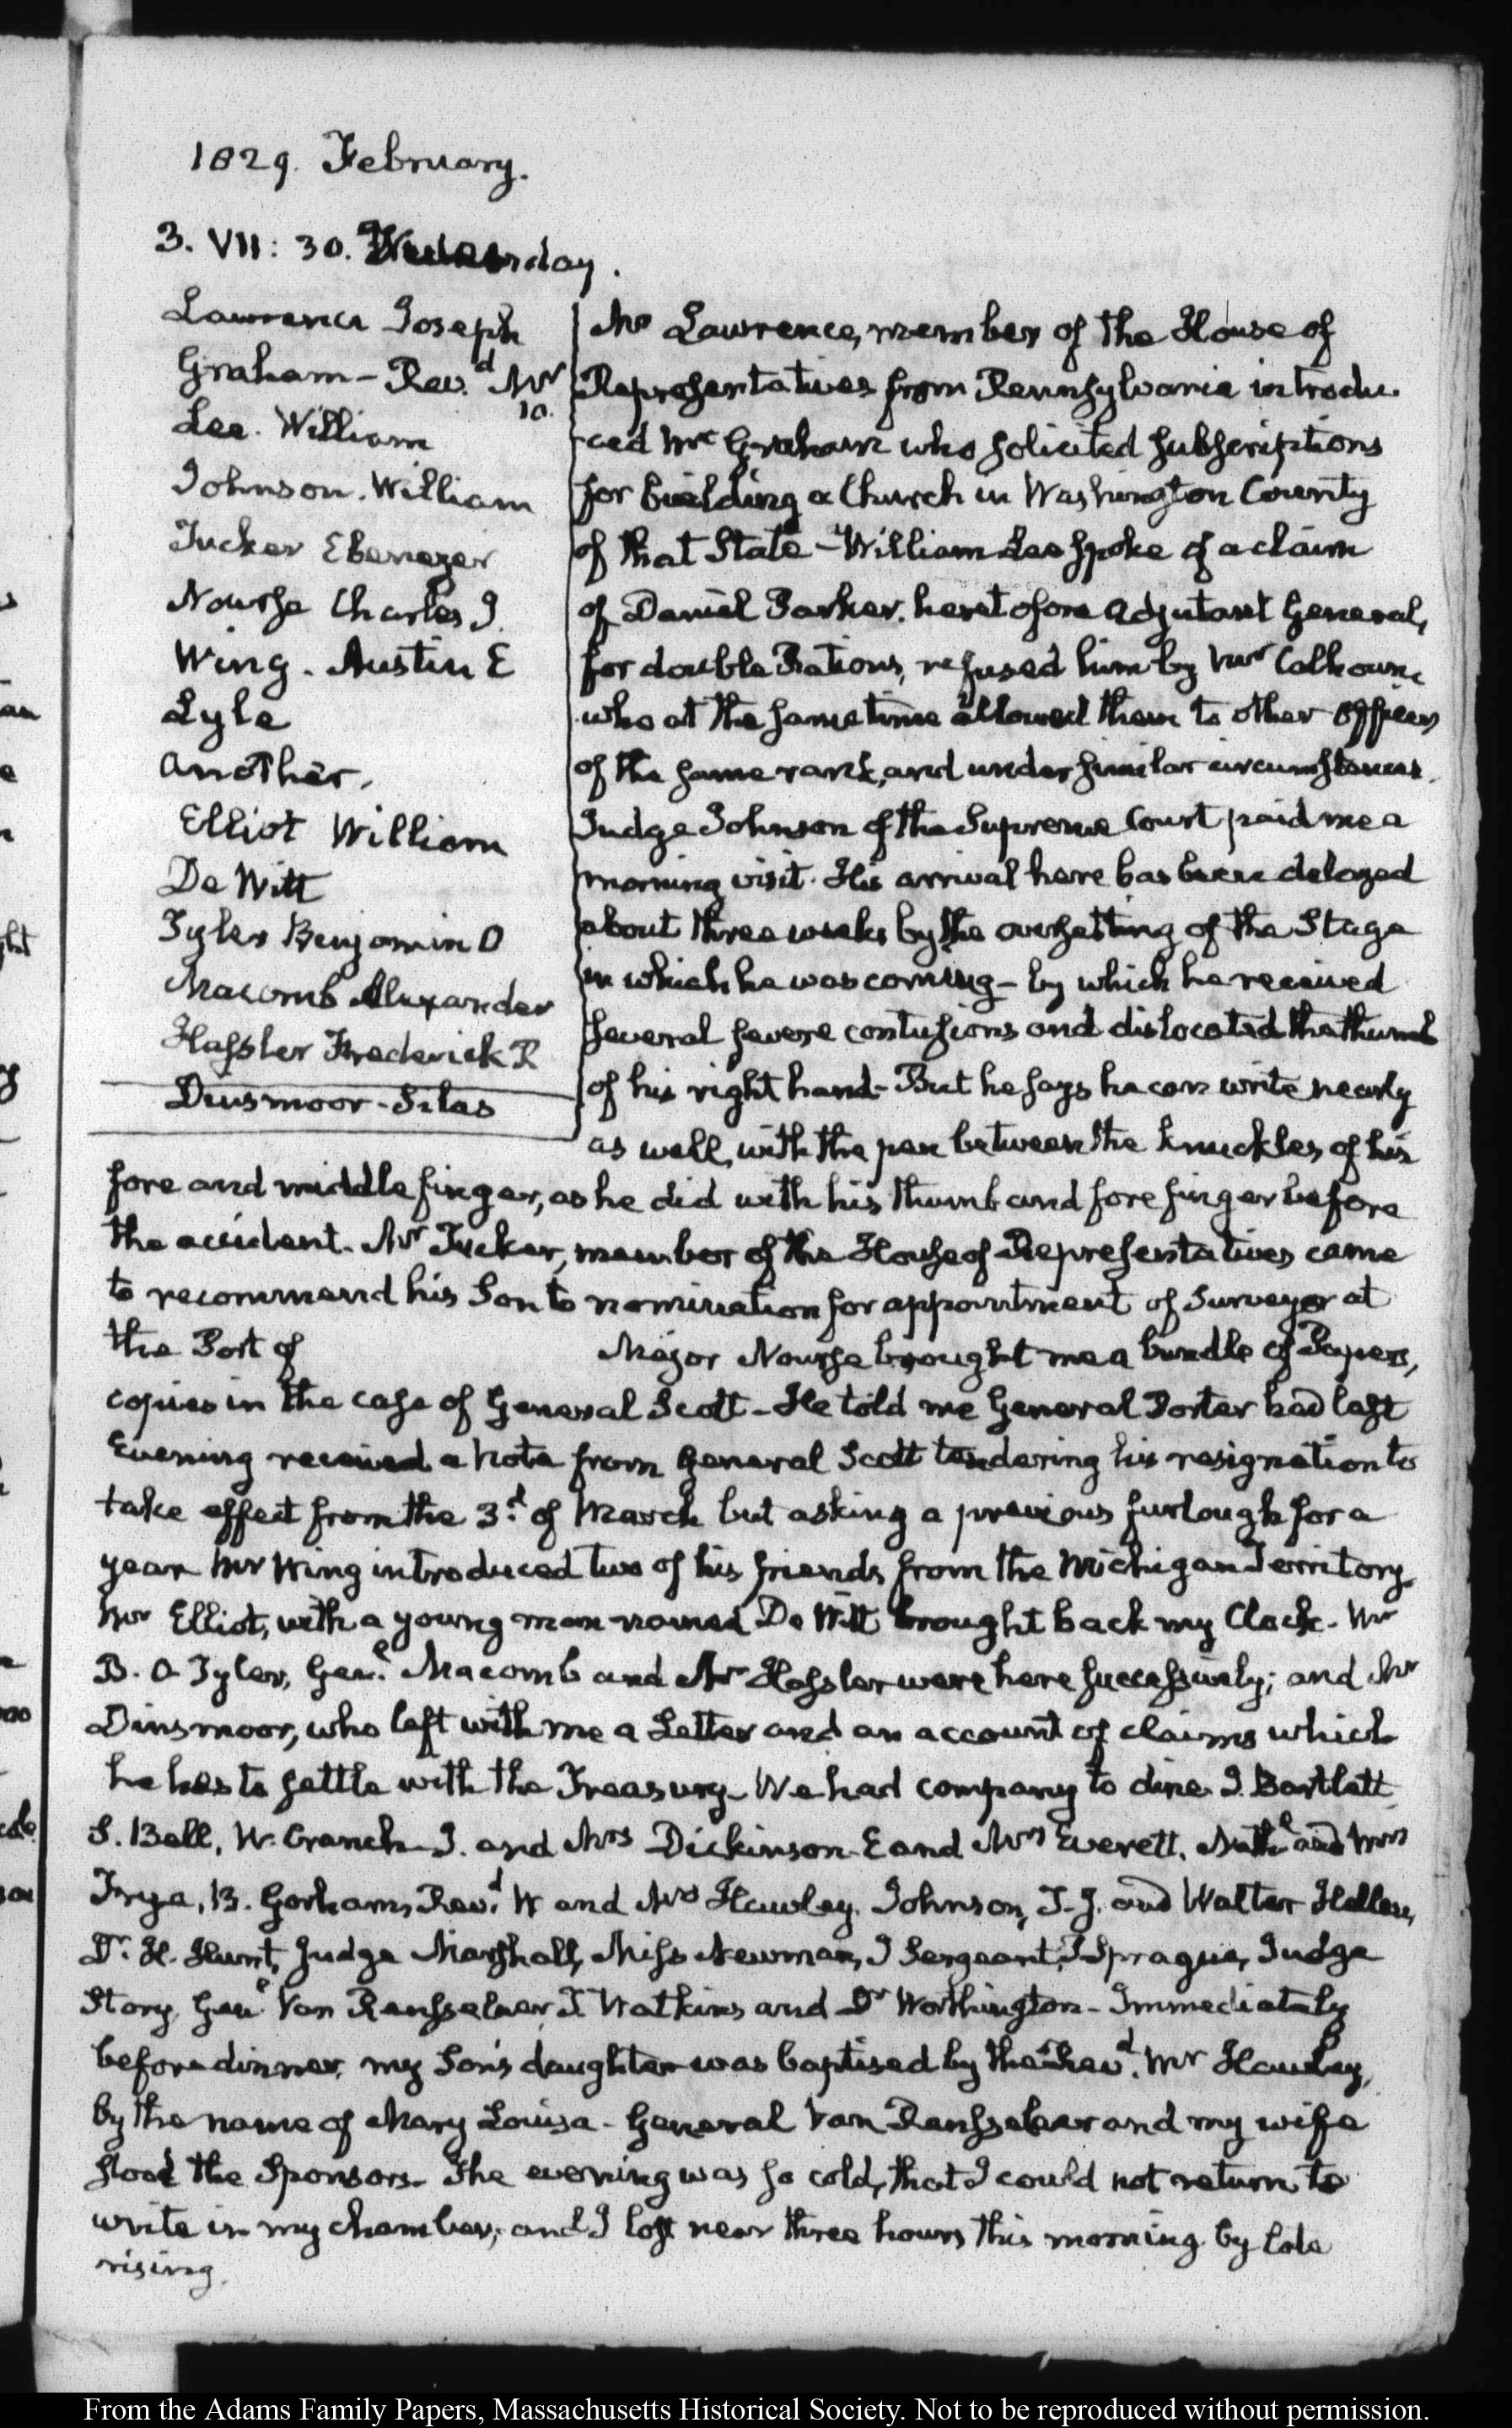 1829. February.
3. VII: 30. Wednesday.
Lawrence Joseph
Graham - Rev.d Mr
10.
Lee. William
Johnson. William
Tucker Ebenezer
Nourse Charles J.
Wing. Austin E
Lyle
another.
Elliot William
De Witt
Tyler Benjamin O
Macomb Alexander
Hassler Frederick R
Dinsmoor - Silas
Mr Lawrence, member of the House of
Representatives from Pennsylvania introdu-
ced Mr Graham who solicited subscriptions
for building a Church in Washington County
of that State - William Lee spoke of a claim
of Daniel Parker, heretofore Adjutant General,
for double Rations, refused him by Mr Calhoun,
who at the same time allowed them to other officers
of the same rank, and under similar circumstances.
Judge Johnson of the Supreme Court paid me a
morning visit. His arrival here has been delayed
about three weeks by the oversetting of the Stage
in which he was coming - by which he received
several severe contusions and dislocated the thumb
of his right hand - But he says he can write nearly
as well, with the pen between the knuckles of his
fore and middle finger, as he did with his thumb and fore finger before
the accident. Mr Tucker, member of the House of Representatives came
to recommend his Son to nomination for appointment of Surveyor at
the Port of Major Nourse brought me a bundle of Papers,
copies in the case of General Scott - He told me General Porter had last
Evening received a Note from General Scott tendering his resignation to
take effect from the 3.d of March but asking a previous furlough for a
year Mr Wing introduced two of his friends from the Michigan Territory.
Mr Elliot, with a young man named De Witt brought back my Clock. Mr
B. O Tyler, Gen.l Macomb and Mr Hassler were here successively; and Mr
Dinsmoor, who left with me a Letter and an account of claims which
he has to settle with the Treasury - We had company to dine. I. Bartlett
S. Bell, W. Cranch - J. and Mrs Dickinson - E and Mrs Everett. Nath.l and Mrs
Frye, B. Gorham, Rev.d W and Mrs Hawley. Johnson, T. J. and Walter Hellen,
Dr. H. Hunt, Judge Marshall, Miss Newman, J Sergeant, P Sprague, Judge
Story, Gen.l Van Rensselaer, T Watkins and Dr Worthington - Immediately
before dinner, my Son's daughter was baptised by the Rev.d Mr Hawley,
by the name of Mary Louisa - General Van Rensselaer and my wife
stood the Sponsors - The evening was so cold, that I could not return to
write in my chamber, and I lost near three hours this morning by late
rising.
From the Adams Family Papers, Massachusetts Historical Society. Not to be reproduced without permission.